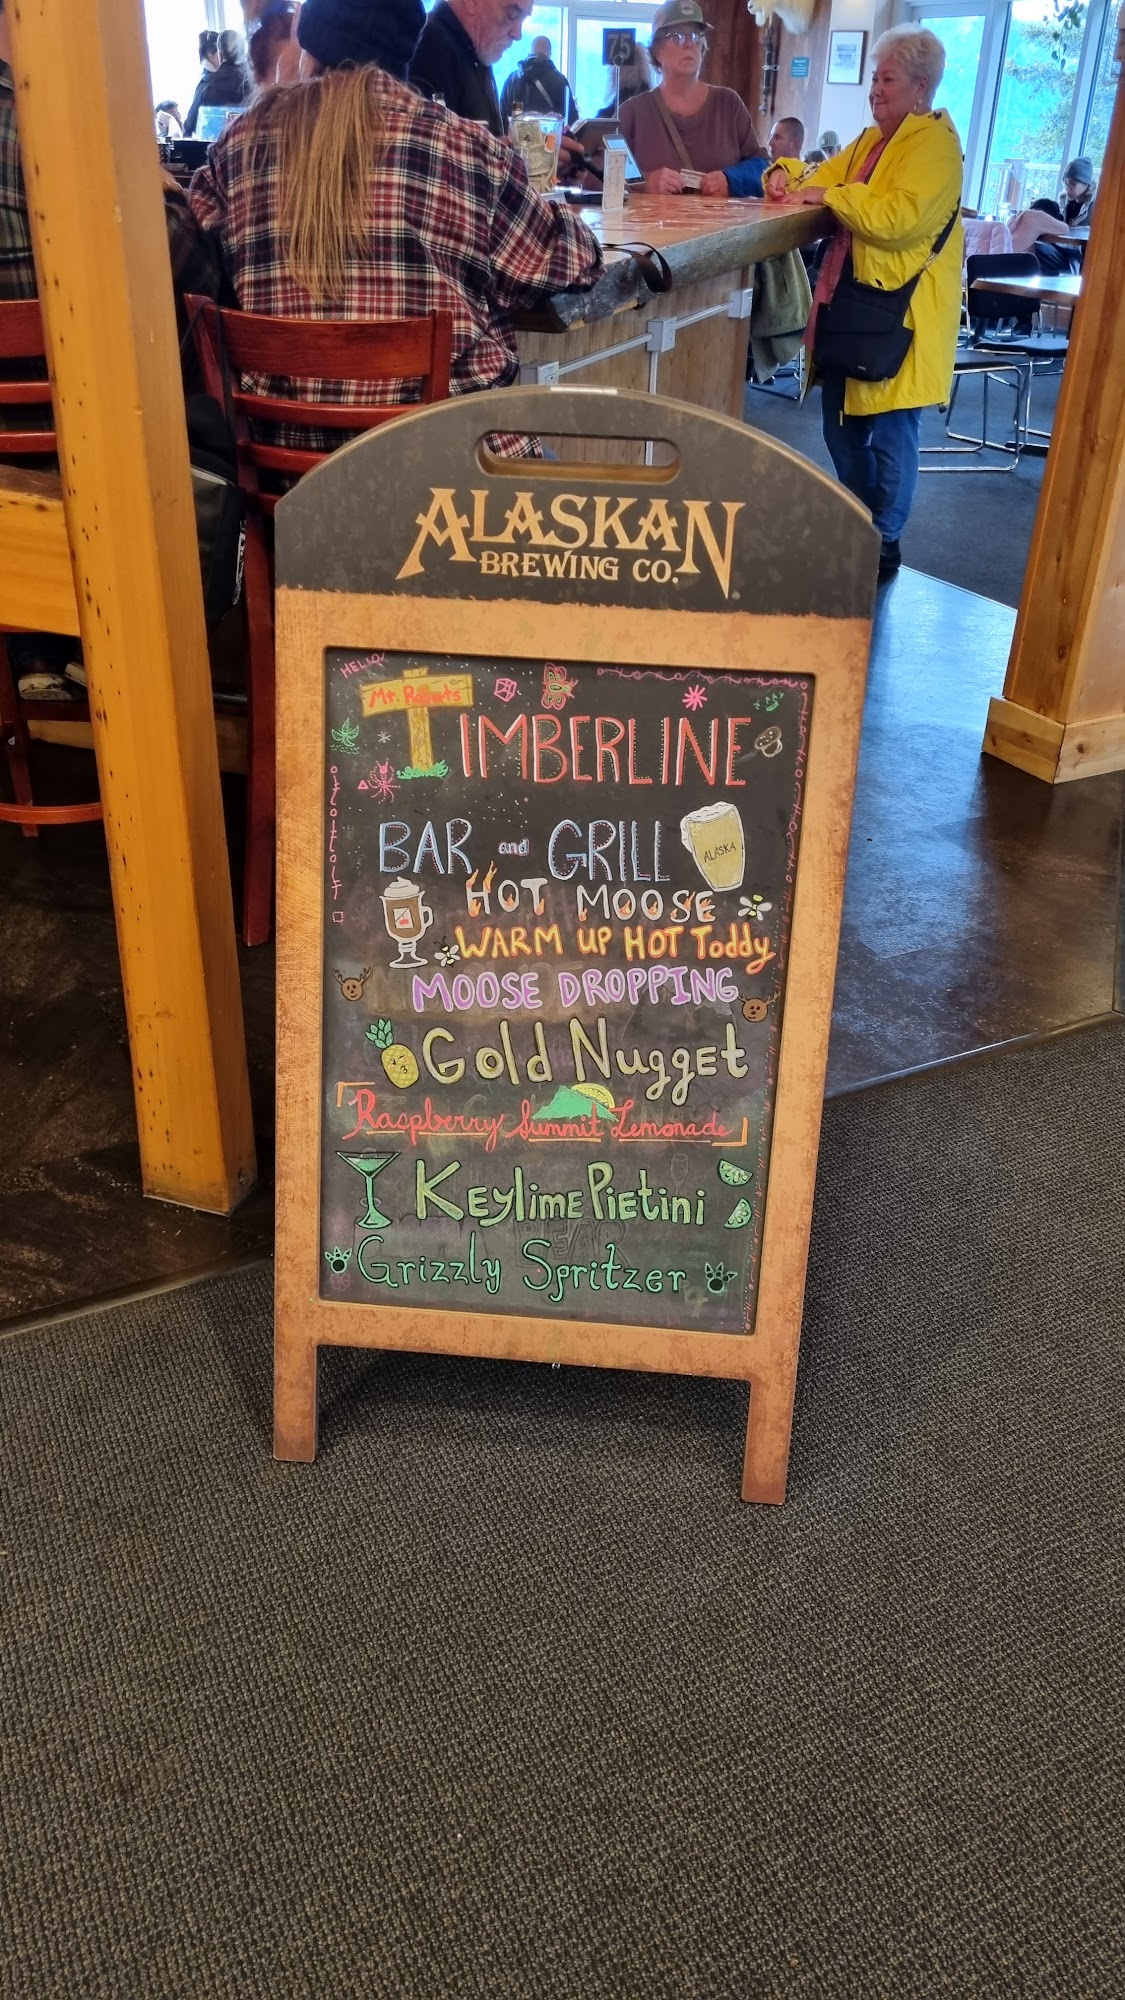 75
ALASKAN
BREWING CO.
HELLO!
Mt. Roberts
TIMBERLINE
BAR and GRILL
ALASKA
HOT MOOSE
WARM UP HOT Toddy
MOOSE DROPPING
Gold Nugget
Raspberry Summit Lemonade
Keylime Pietini
Grizzly Spritzer